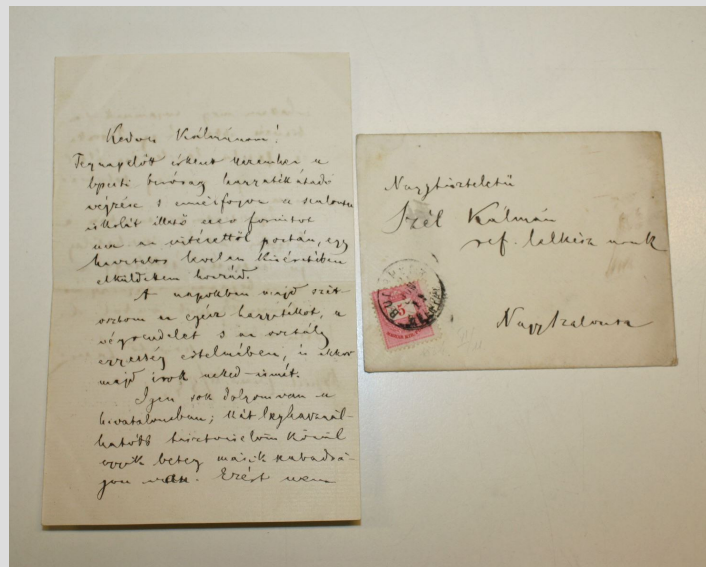 Kedves Kálmánom!
Tegnapelőtt érkezett kezemhez a
bpesti biróság hagyaték átadó
végzése s ennélfogva a szalontai
iskolát illető forintot
ma az postán, egy
hivatalos levelem kiséretében
elküldöttem hozzád.
A napokban majd szét
osztom az egész hagyatékot, a
végrendelet s az osztály
egyezség értelmében, és akkor
majd irok neked ismét.
Igen sok dolgom van a
hivatalomban; két leghasznál-
hatóbb tisztviselőm közül
egyik beteg másik szabadsá-
gon van. Ezért nem
Nagytiszteletü
Szél Kálmán
ref. lelkész urnak
Nagyszalonta